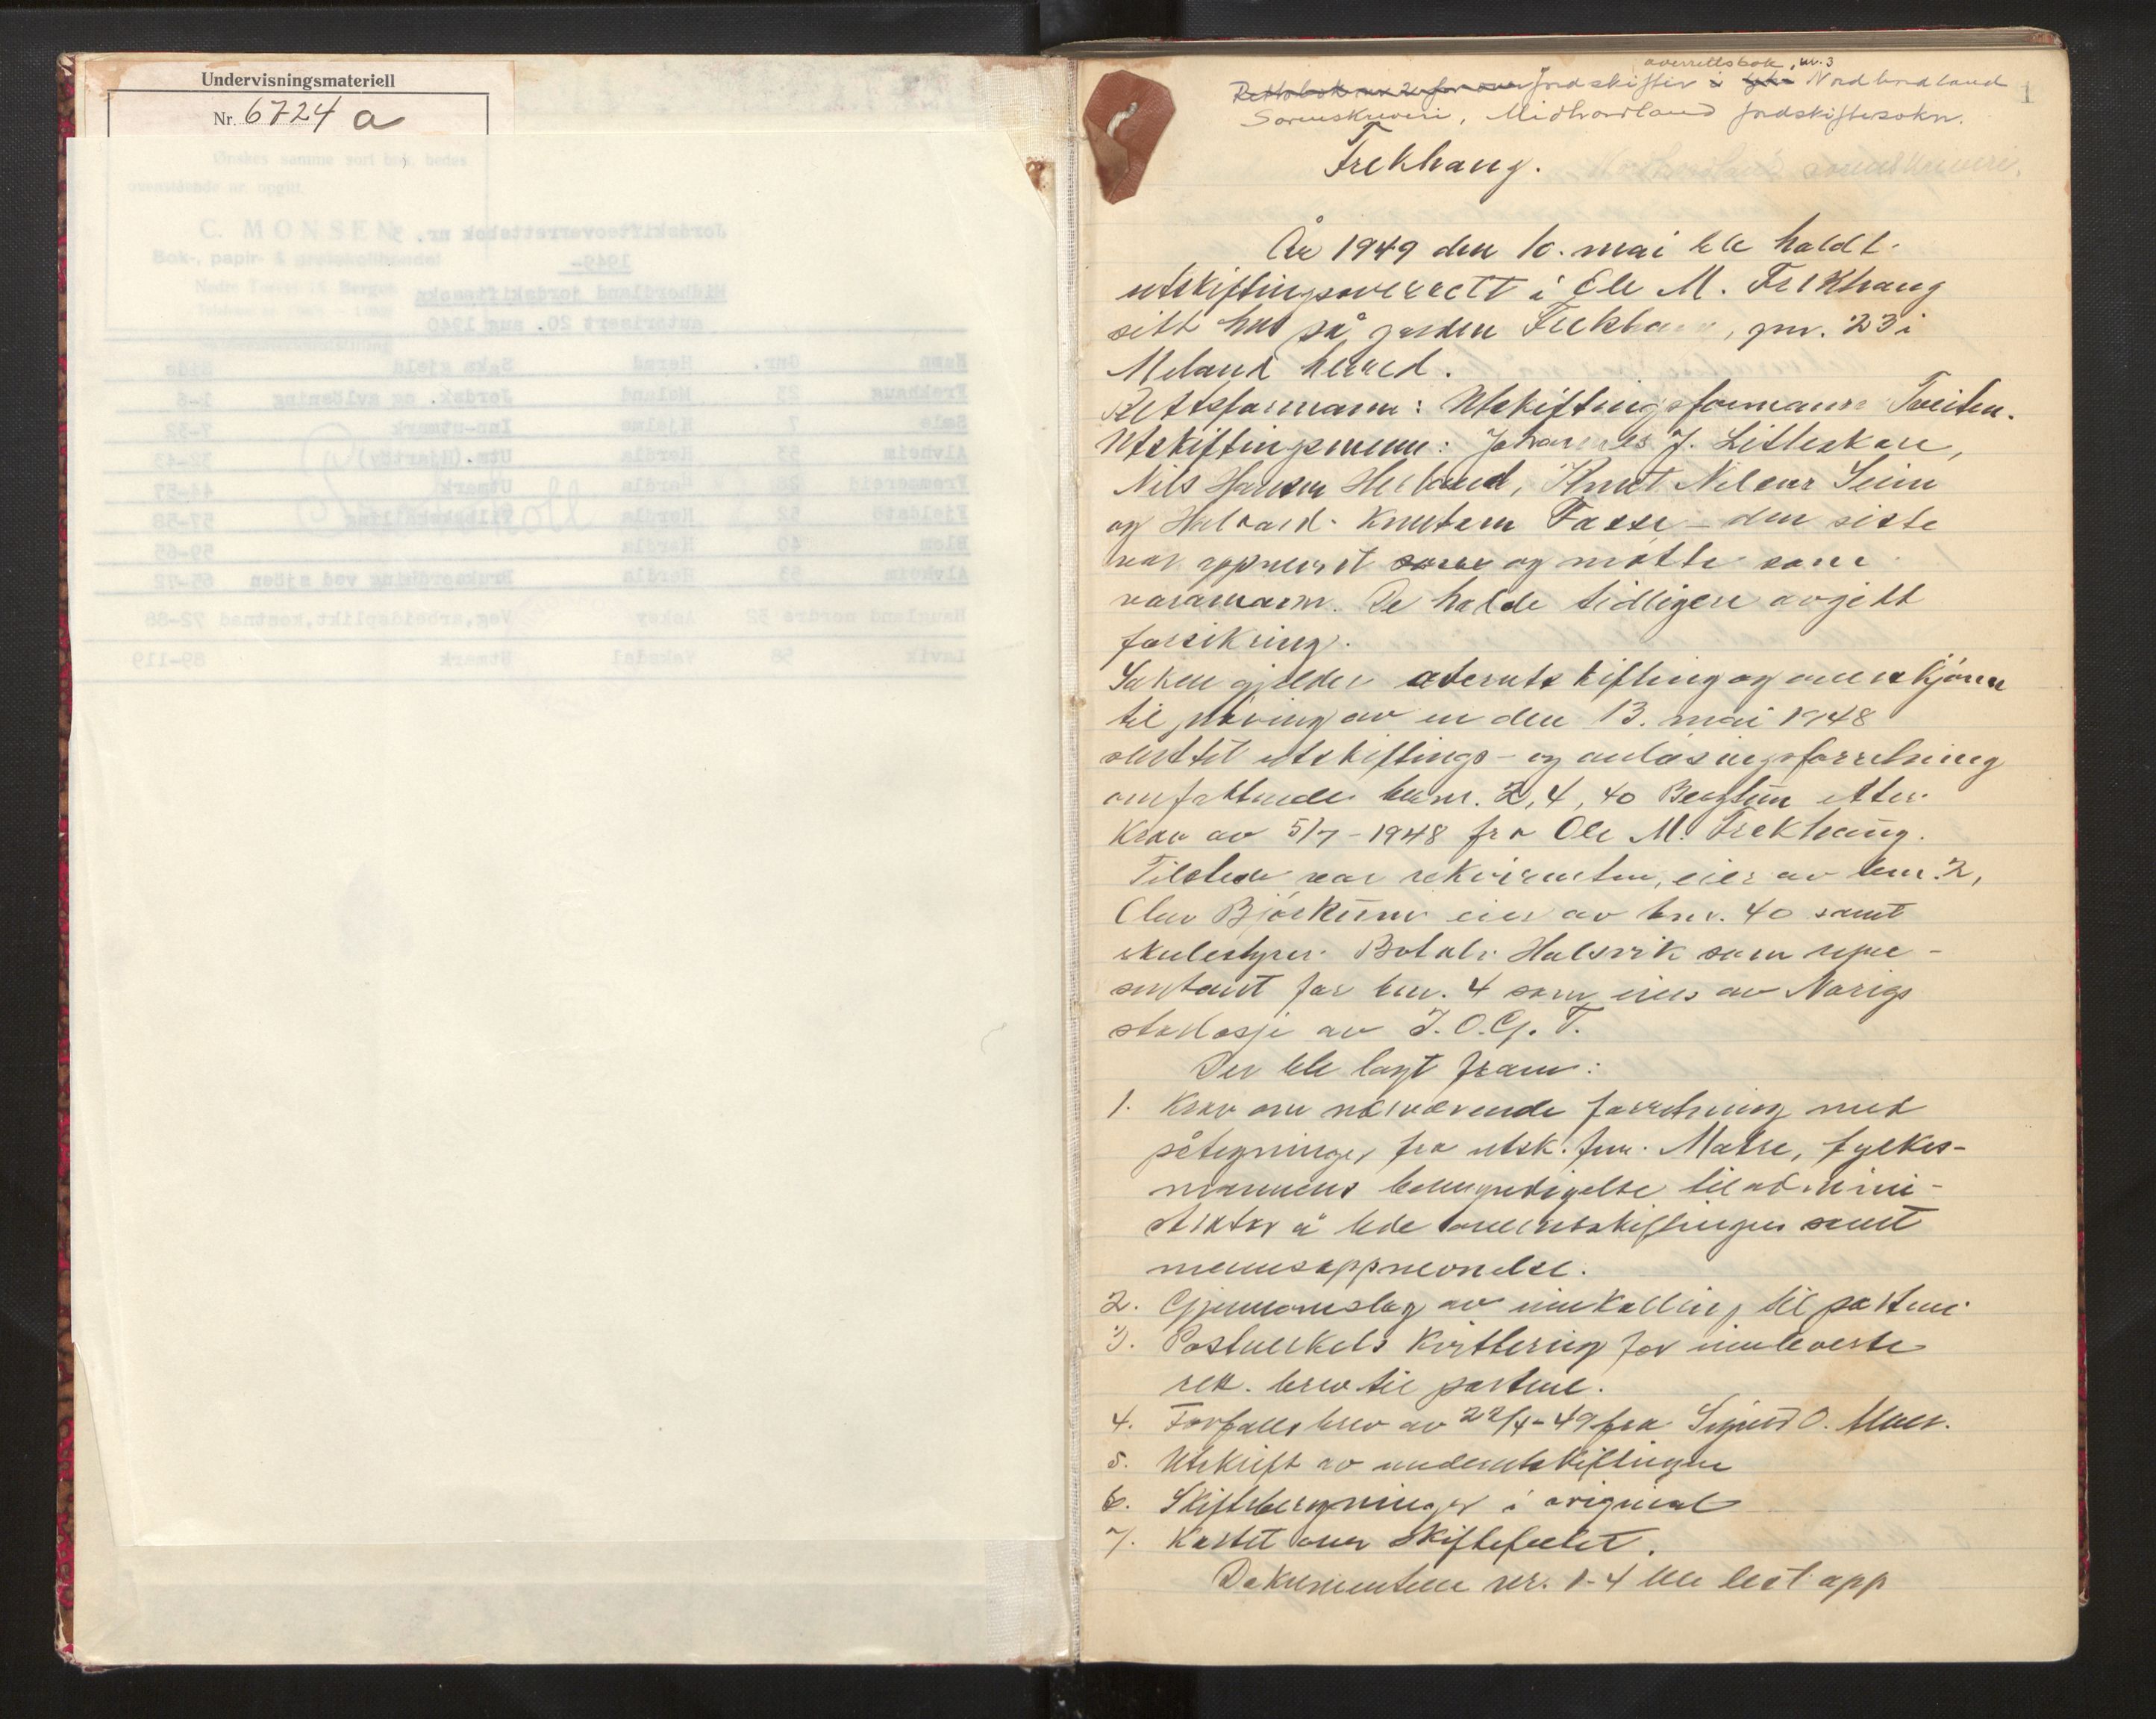 Undervisningsmateriell
Nr. 6724 a
Ønskes samme sort bok, bedes
ovenstående nr. opgitt.
C. MONSEN
Bok-, papir- &
Jordskifteoverrettsbok nr. 3
1949-
Midhordland jordskiftesokn
autorisert 20. aug 1940
Namn Gnr. Herad Saka gjeld Side
Frekhaug 23 Meland Jordsk. og avlösning 1-6
Sæle 7 Hjelme Inn-utmark 7-32
Alvheim 53 Herdla Utm. (Hjartöy) 32-43
Tremmereid 28 Herdla Utmark 44-57
Fjeldstö 52 Herdla 57-58
Blom 40 Herdla 59-65
Alvheim 53 Herdla Bruksordning ved sjöen 65-72
Haugland nordre 52 Askøy Veg, arbeidsplikt, kostnad 72-88
Lavik 58 Vaksdal Utmark 89-119
overrettsbok, nr. 3
jordskifter i Nordhordland
Sorenskriveri, Midhordland jordskiftesokn.
1
Frekhaug.
År 1949 den 10. mai ble holdt
utskiftingsoverrett i Ole M. Frekhaug
sitt hus på garden Frekhaug, gnr. 23 i
Meland herred.
Rettsformann: Utskiftingsformann Tveiten.
Utskiftingsmenn: Johannes J. Litleskare,
Nils Hansen Herland, Knut Nilsen Seim
og Halvard Knutsen Fosse - den siste
var oppnevnt som og møtte som
varamann. De hadde tidligere avgitt
forsikring.
Saken gjelder overutskifting og overskjønn
til prøving av en den 13. mai 1948
sluttet utskiftings- og avløsningsforretning
omfattende bnr. 2, 4, 40 Bergtun etter
krav av 5/7-1948 fra Ole M. Frekhaug.
Tilstede var rekvirenten, eier av bnr. 2,
Olav Bjørkum eier av bnr. 40 samt
skulestyrer Botolv Halsvik som repre-
sentant for bnr. 4 som eies av Norigs
storlosje av I.O.G.T.
Der ble lagt fram:
1. Krav om nærværende forretning med
påtegninger fra utsk. fm. Matre, fylkes-
mannens bemyndigelse til admini-
strator å lede overutskiftingen samt
mennsoppnevnelse.
2. Gjennomslag av innkalling til partene
3. Postverkets kvittering for innleverte
rek. brev til partene.
4. Forfallsbrev av 22/4-49 fra Sigurd O.
5. Utskrift av underutskiftingen
6. Skifteberegninger i original
7. Kartet over skiftefeltet.
Dokumentene nr. 1-4 ble lest opp